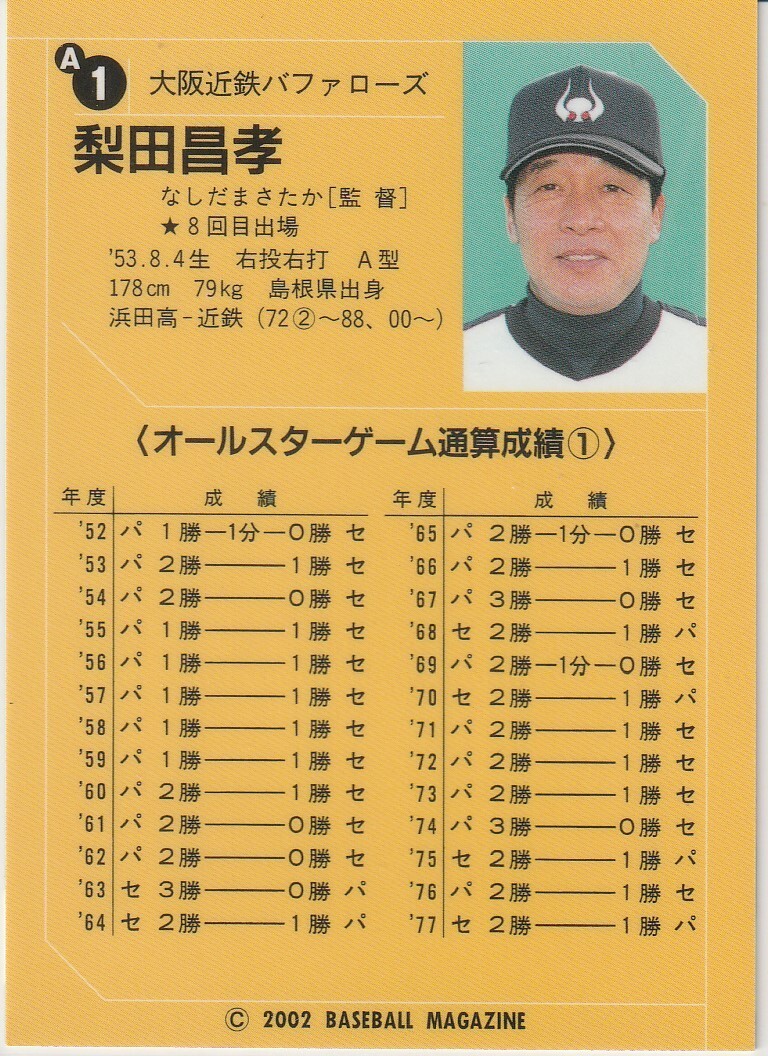 A
1 大阪近鉄バファローズ
梨田昌孝
なしだまさたか[監 督]
★8回目出場
'53.8.4生 右投右打 A型
178cm 79kg 島根県出身
浜田高-近鉄(72②〜88、00〜)
〈オールスターゲーム通算成績①〉
年度 成 績
'52 パ 1勝―1分―0勝 セ
'53 パ 2勝―――1勝 セ
'54 パ 2勝―――0勝 セ
'55 パ 1勝―――1勝 セ
'56 パ 1勝―――1勝 セ
'57 パ 1勝―――1勝 セ
'58 パ 1勝―――1勝 セ
'59 パ 1勝―――1勝 セ
'60 パ 2勝―――1勝 セ
'61 パ 2勝―――0勝 セ
'62 パ 2勝―――0勝 セ
'63 セ 3勝―――0勝 パ
'64 セ 2勝―――1勝 パ
年度 成 績
'65 パ 2勝―1分―0勝 セ
'66 パ 2勝―――1勝 セ
'67 パ 3勝―――0勝 セ
'68 セ 2勝―――1勝 パ
'69 パ 2勝―1分―0勝 セ
'70 セ 2勝―――1勝 パ
'71 パ 2勝―――1勝 セ
'72 パ 2勝―――1勝 セ
'73 パ 2勝―――1勝 セ
'74 パ 3勝―――0勝 セ
'75 セ 2勝―――1勝 パ
'76 パ 2勝―――1勝 セ
'77 セ 2勝―――1勝 パ
© 2002 BASEBALL MAGAZINE